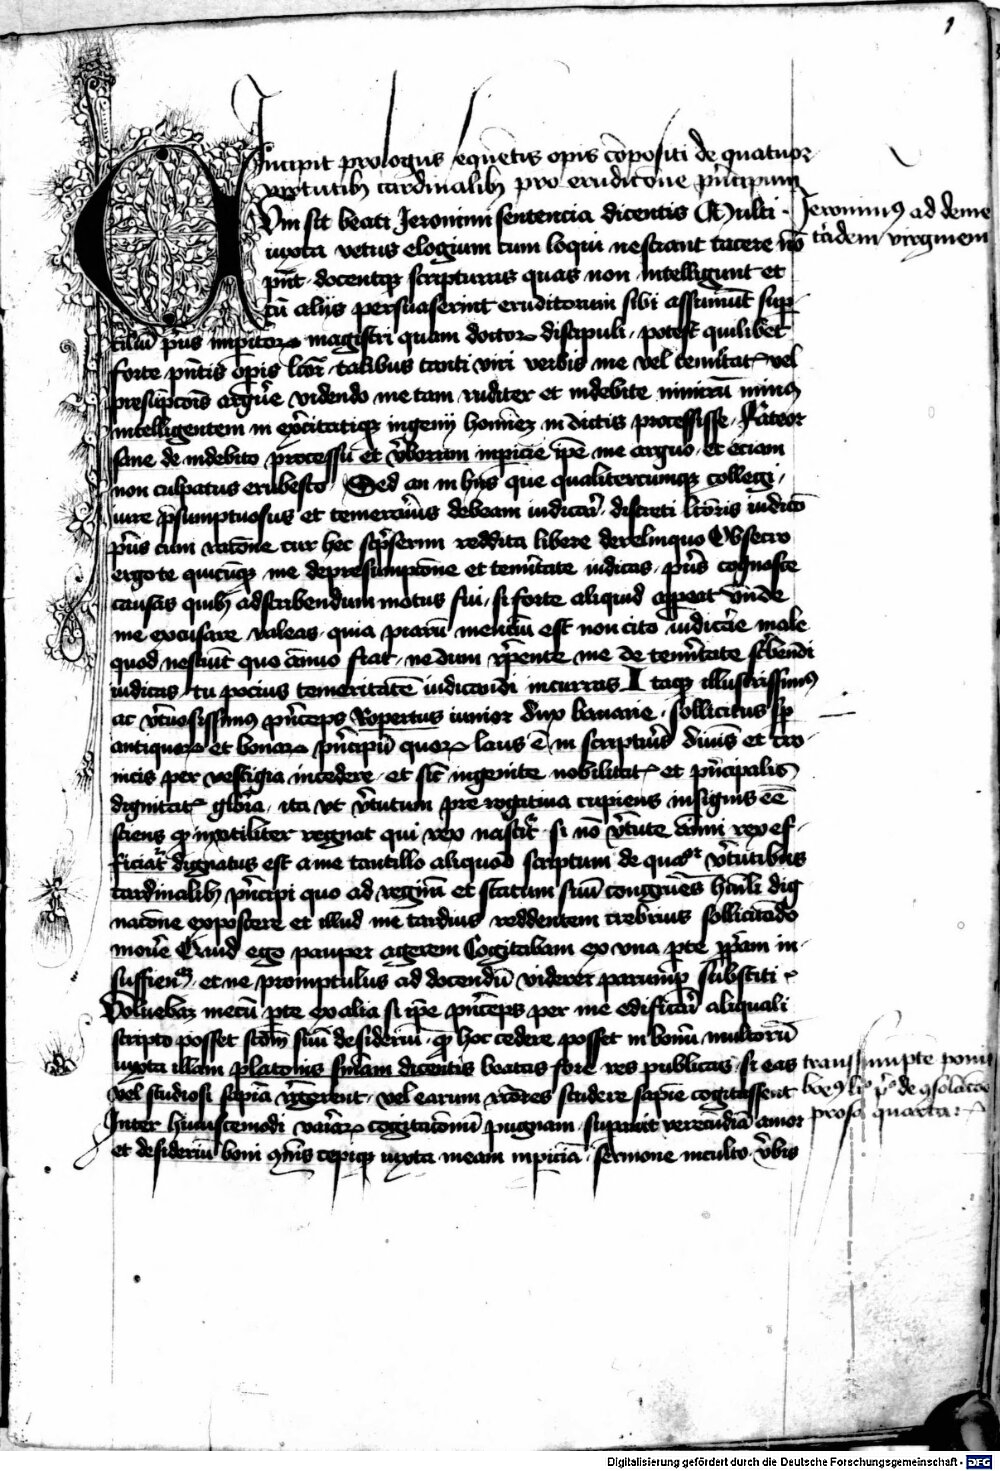 1
Incipit prologus sequētis opīs cōpositi de quatuor
virtutibꝫ cardinalibꝫ pro erudicōne pͥncipum
Cum sit beati Jeronimi sentencia dicentis Multi ·
iuxta vetus elogium cum loqui nesciant tacere nō
pn̄t · docentqꝫ scripturas quas non intelligunt et
cū alijs persuaserint eruditorum sibi assumūt sup̄
ciliū pͥus impitoꝝ magistri quam doctoꝝ discipuli · potest quilibet
forte pn̄tis opīs lc̄or · talibus tanti viri verbis me vel temͥtatꝭ vel
presūpcōis arguͤe videndo me tam ruditer et indebite nimirū minꝰ
intelligentem in exͤcitatiqꝫ ingenij homīeꝫ in dictis processisse · Fateor
sane de indebito processu et vͤborum inpicie ip̄e me arguo · et eciam
non culpatus erubesco · Sed an in hijs que qualitercumqꝫ collegi ·
iure pͤsumptuosus et temerariꝰ debeam iudicari · discreti lc̄oris iudicō
pͥus cum racōne cur hec scͥpserim reddita libere derelinquo Obsecro
ergo te quicūqꝫ me de presumpcōne et temͥtate iudicas · pͥus cognosce
causas quibꝫ ad scribendum motus fui · si forte aliquid appeat vn̄de
me excusare valeas · quia piarū menciū est non cito iudicare male
quod nesciūt quo aīmo fiat · ne dum rͤpente me de temͥtate scͥbendi
iudicas · tu pocius temeritatē iudicandi incurras Itaqꝫ illustrissimꝰ
ac vͥtuosissimꝰ pͥnceps Ropertus iunior dux bauarie · sollicitus sup
antiquoꝝ et bonoꝝ pͥncipū quoꝝ laus ē in scripturis diuīis et cro
nicis per vestigia incedere · et sic̄ ingenite nobilitatꝭ et pͥncipalis
dignitatꝭ gloria · ita vt vͥtutum prerogatiua cupiens insignis eē
sciens qꝫ inutiliter regnat qui rex nascitr̄ · si nō vͥtute animi rex ef ·
ficiatr̄ dignatus est a me tantillo aliquod scriptum de quaͦr vͥtutibus
cardinalibꝫ pͥncipi quo ad regimē et statum suū congruēs huīli dig
nacōne exposcere et illud me tardius reddentem crebrius sollicitādo
mouͤe Quid ego pauper agerem Cogitabam ex vna pͣte pp̄am in ·
sufficienᵃꝫ · et ne promptulus ad docendū viderer parumpͥ substiti ·
Voluebaꝫ mecū pͣte ex alia si ip̄e pͥnceps per me edificari aliquali
scripto posset scd̄m suū desideriū · qꝫ hoc cedere posset in bonū multorū
iuxta illam platonis sn̄iam dicentis beatas fore res publicas · si eas
vel studiosi sapīe rͤgerent · vel earum rc̄ores studere sapīe cogitassent
Inter huiuscemodi variaꝝ cogitacionū pugnam · supauit verecūdiā amor
et desideriū boni cōīs cepiqꝫ iuxta meam inpiciā · sermone inculto · vͤbis
Jeronimꝰ ad deme
tiadem virginem
transsumpte ponit
boeꝯ liꝰ pͦ de ꝯsolacōe
prosa quarta ·
Digitalisierung gefördert durch die Deutsche Forschungsgemeinschaft - DFG